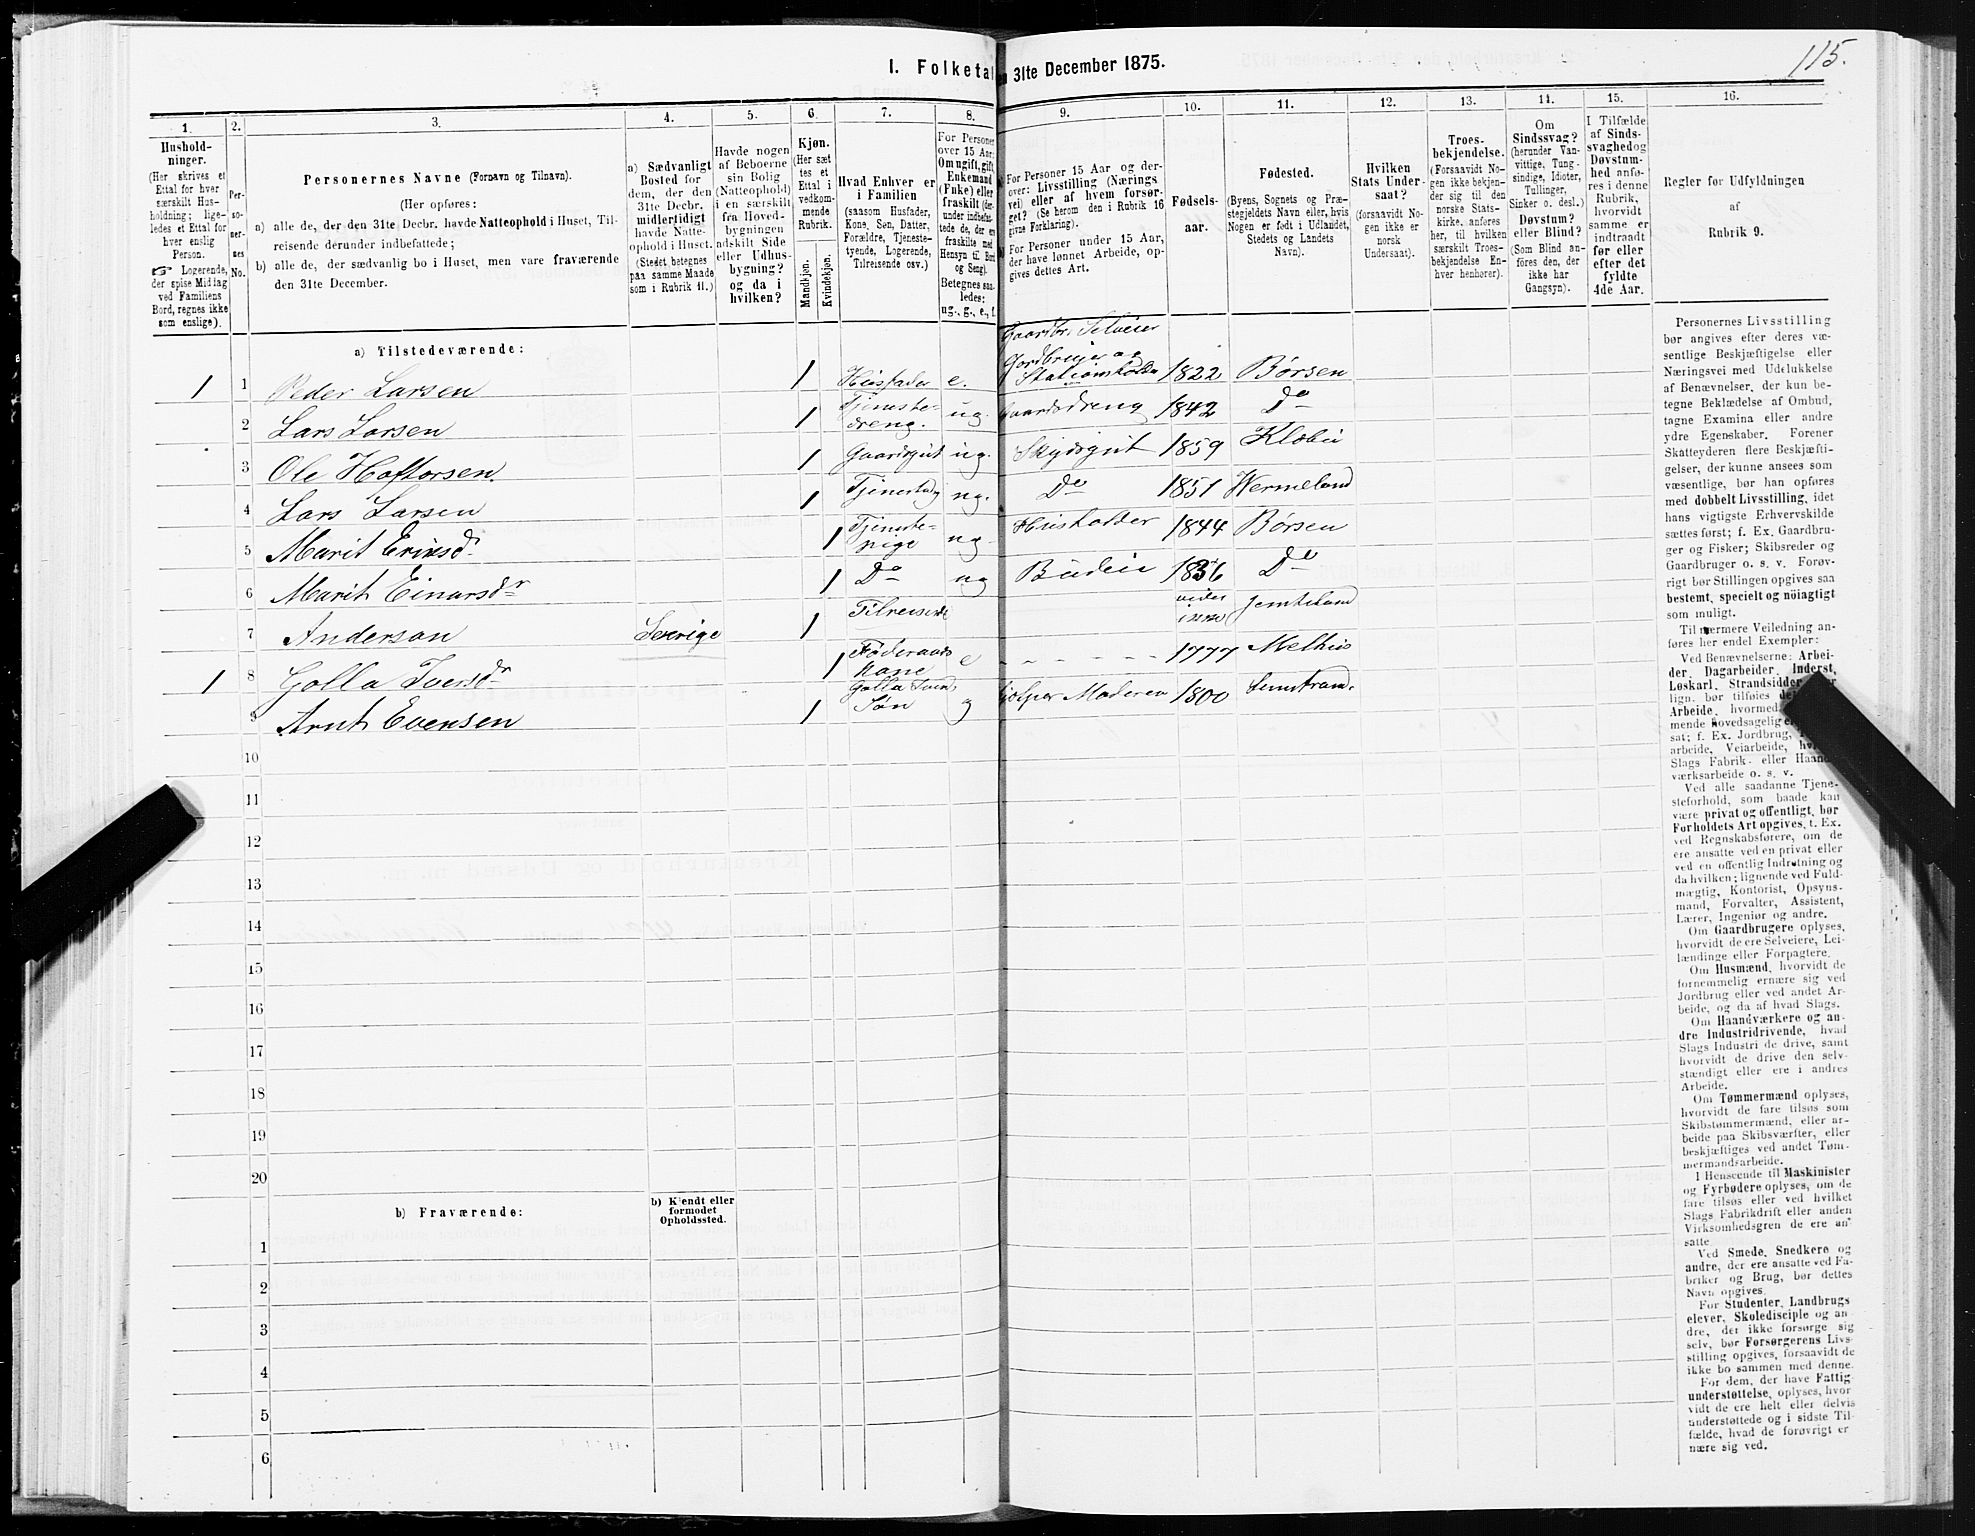 115.
I. Folketal
n 31te December 1875.
1. 2. 3. 4. 5. 6. 7. 8. 9. 10. 11. 12. 13. 14. 15. 16.
Hushold-
ninger.
(Her skrives et
Ettal for hver
særskilt Hus-
holdning; lige-
ledes et Ettal for
hver enslig
Person.
☞ Logerende,
der spise Middag
ved Familiens
Bord, regnes ikke
som enslige).
Per-
so-
ner-
nes
No.
Personernes Navne (Fornavn og Tilnavn).
(Her opføres:
a) alle de, der den 31te Decbr. havde Natteophold i Huset, Til-
reisende derunder indbefattede;
b) alle de, der sædvanlig bo i Huset, men vare fraværende
den 31te December.
a) Sædvanligt
Bosted for
dem, der den
31te Decbr.
midlertidigt
havde Natte-
ophold i Huset.
(Stedet betegnes
paa samme Maade
som i Rubrik 11.)
Havde nogen
af Beboerne
sin Bolig
(Natteophold)
i en særskilt
fra Hoved-
bygningen
adskilt Side
eller Udhus-
bygning?
og da i
hvilken?
Kjøn.
(Her sæt
tes et
Ettal i
vedkom-
mende
Rubrik.
Mandkjøn.
Kvindekjøn.
Hvad Enhver er
i Familien
(saasom Husfader,
Kone, Søn, Datter,
Forældre, Tjeneste-
tyende, Logerende,
Tilreisende osv.)
For Personer
over 15 Aar:
Om ugift, gift,
Enkemand
(Enke) eller
fraskilt (der-
under indbefat-
tede de, der ere
fraskilte med
Hensyn til Bord
og Seng).
Betegnes saa-
ledes:
ug., g., e., f.
For Personer 15 Aar og der-
over: Livsstilling (Nærings
vei) eller af hvem forsør-
get? (Se herom den i Rubrik 16
givne Forklaring).
b) For Personer under 15 Aar,
der have lønnet Arbeide, op-
gives dettes Art.
Fødsels-
aar.
Fødested.
(Byens, Sognets og Præ-
stegjeldets Navn eller, hvis
Nogen er født i Udlandet,
Stedets og Landets
Navn).
Hvilken
Stats Under-
saat?
(forsaavidt No-
gen ikke er
norsk
Undersaat).
Troes-
bekjendelse.
(Forsaavidt No-
gen ikke bekjen-
der sig til den
norske Stats-
kirke, anføres
her, til hvilken
særskilt Troes-
bekjendelse En-
hver henhører).
Om
Sindssvag?
(herunder Van-
vittige, Tung-
sindige, Idioter,
Tullinger,
Sinker o. desl.)
Døvstum?
eller Blind?
(Som Blind an-
føres den, der
ikke har
Gangsyn).
I Tilfælde
af Sinds-
svaghed og
Døvstum-
hed anfø-
res i denne
Rubrik,
hvorvidt
samme er
indtraadt
før eller
efter det
fyldte
4de Aar.
Regler for Udfyldningen
af
Rubrik 9.
a) Tilstedeværende:
Gaardbr. Selveier
Jordbruger og
1 1 Peder Larsen 1 Husfader e. Stationsholder 1822 Børsen
2 Lars Larsen 1 Tjeneste-
dreng. ug. Gaardsdreng 1842 Do
3 Ole Haftorsen. 1 Gaardsgut ug. Skydsgut 1859 Klæbu
4 Lars Larsen 1 ug. Do 1851 Wermeland
5 Marit Ericsdr 1 Tjeneste-
pige ug. Husholder 1844 Børsen
6 Marit Einarsdr 1 Do ug Budeie 1836 Do
7 Anderson Sverige 1 Tilreisende Jemteland
1 8 Golla Iversdr 1 Føderaads
Kone e - - - - - 1777 Melhus
9 Arnt Evensen 1 Golla
Søn g Moderen 1800
10
11
12
13
14
15
16
17
18
19
20
b) Fraværende:
b) Kjendt eller
formodet
Opholdssted.
1
2
3
4
5
6
Personernes Livsstilling
bør angives efter deres væ-
sentlige Beskjæftigelse eller
Næringsvei med Udelukkelse
af Benævnelser, der kun be-
tegne Beklædelse af Ombud,
tagne Examina eller andre
ydre Egenskaber. Forener
Skatteyderen flere Beskjæfti-
gelser, der kunne ansees som
væsentlige, bør han opføres
med dobbelt Livsstilling, idet
hans vigtigste Erhvervskilde
sættes først; f. Ex. Gaardbru-
ger og Fisker; Skibsreder og
Gaardbruger o. s. v. Forøv-
rigt bør Stillingen opgives saa
bestemt, specielt og nöiagtigt
som muligt.
Til nærmere Veiledning an-
føres her endel Exempler:
Ved Benævnelserne: Arbei-
der, Dagarbeider, Inderst,
Løskarl, Strandsidder
lign. bør tilføies
Arbeide, hvormed
mende hovedsagelig
sat; f. Ex. Jordbrug,
arbeide, Veiarbeide,
Slags Fabrik- eller Haand-
værksarbeide o. s. v.
Ved alle saadanne Tjene-
steforhold, som baade kan
være privat og offentligt, bør
Forholdets Art opgives, t. Ex.
ved Regnskabsførere, om de
ere ansatte ved en privat eller
ved en offentlig Indretning og
da hvilken; lignende ved Fuld-
mægtig, Kontorist, Opsyns-
mand, Forvalter, Assistent,
Lærer, Ingeniør og andre.
Om Gaardbrugere oplyses,
hvorvidt de ere Selveiere, Lei-
lændinge eller Forpagtere.
Om Husmænd, hvorvidt de
fornemmelig ernære sig ved
Jordbrug eller ved andet Ar-
beide, og da af hvad Slags.
Om Haandværkere og an-
dre Industridrivende, hvad
Slags Industri de drive, samt
hvorvidt de drive den selv-
stændigt eller ere i andres
Arbeide.
Om Tømmermænd oplyses,
hvorvidt de fare tilsøs som
Skibstømmermænd, eller ar-
beide paa Skibsværfter, eller
beskjæftiges ved andet Tøm-
mermandsarbeide.
I Henseende til Maskinister
og Fyrbødere oplyses, om de
fare tilsøs eller ved hvilket
Slags Fabrikdrift eller anden
Virksomhedsgren de ere an-
satte.
Ved Smede, Snedkere og
andre, der ere ansatte ved Fa-
briker og Brug, bør dettes
Navn opgives.
For Studenter, Landbrugs
elever, Skoledisciple og an-
dre, der ikke forsørge sig
selv, bør Forsørgerens Livs-
stilling opgives, forsaavidt de
ikke bo sammen med denne.
For dem, der have Fattig-
understøttelse, oplyses, hvor
vidt de ere helt eller delvis
understøttede og i sidste Til-
fælde, hvad de forøvrigt er
nære sig ved.